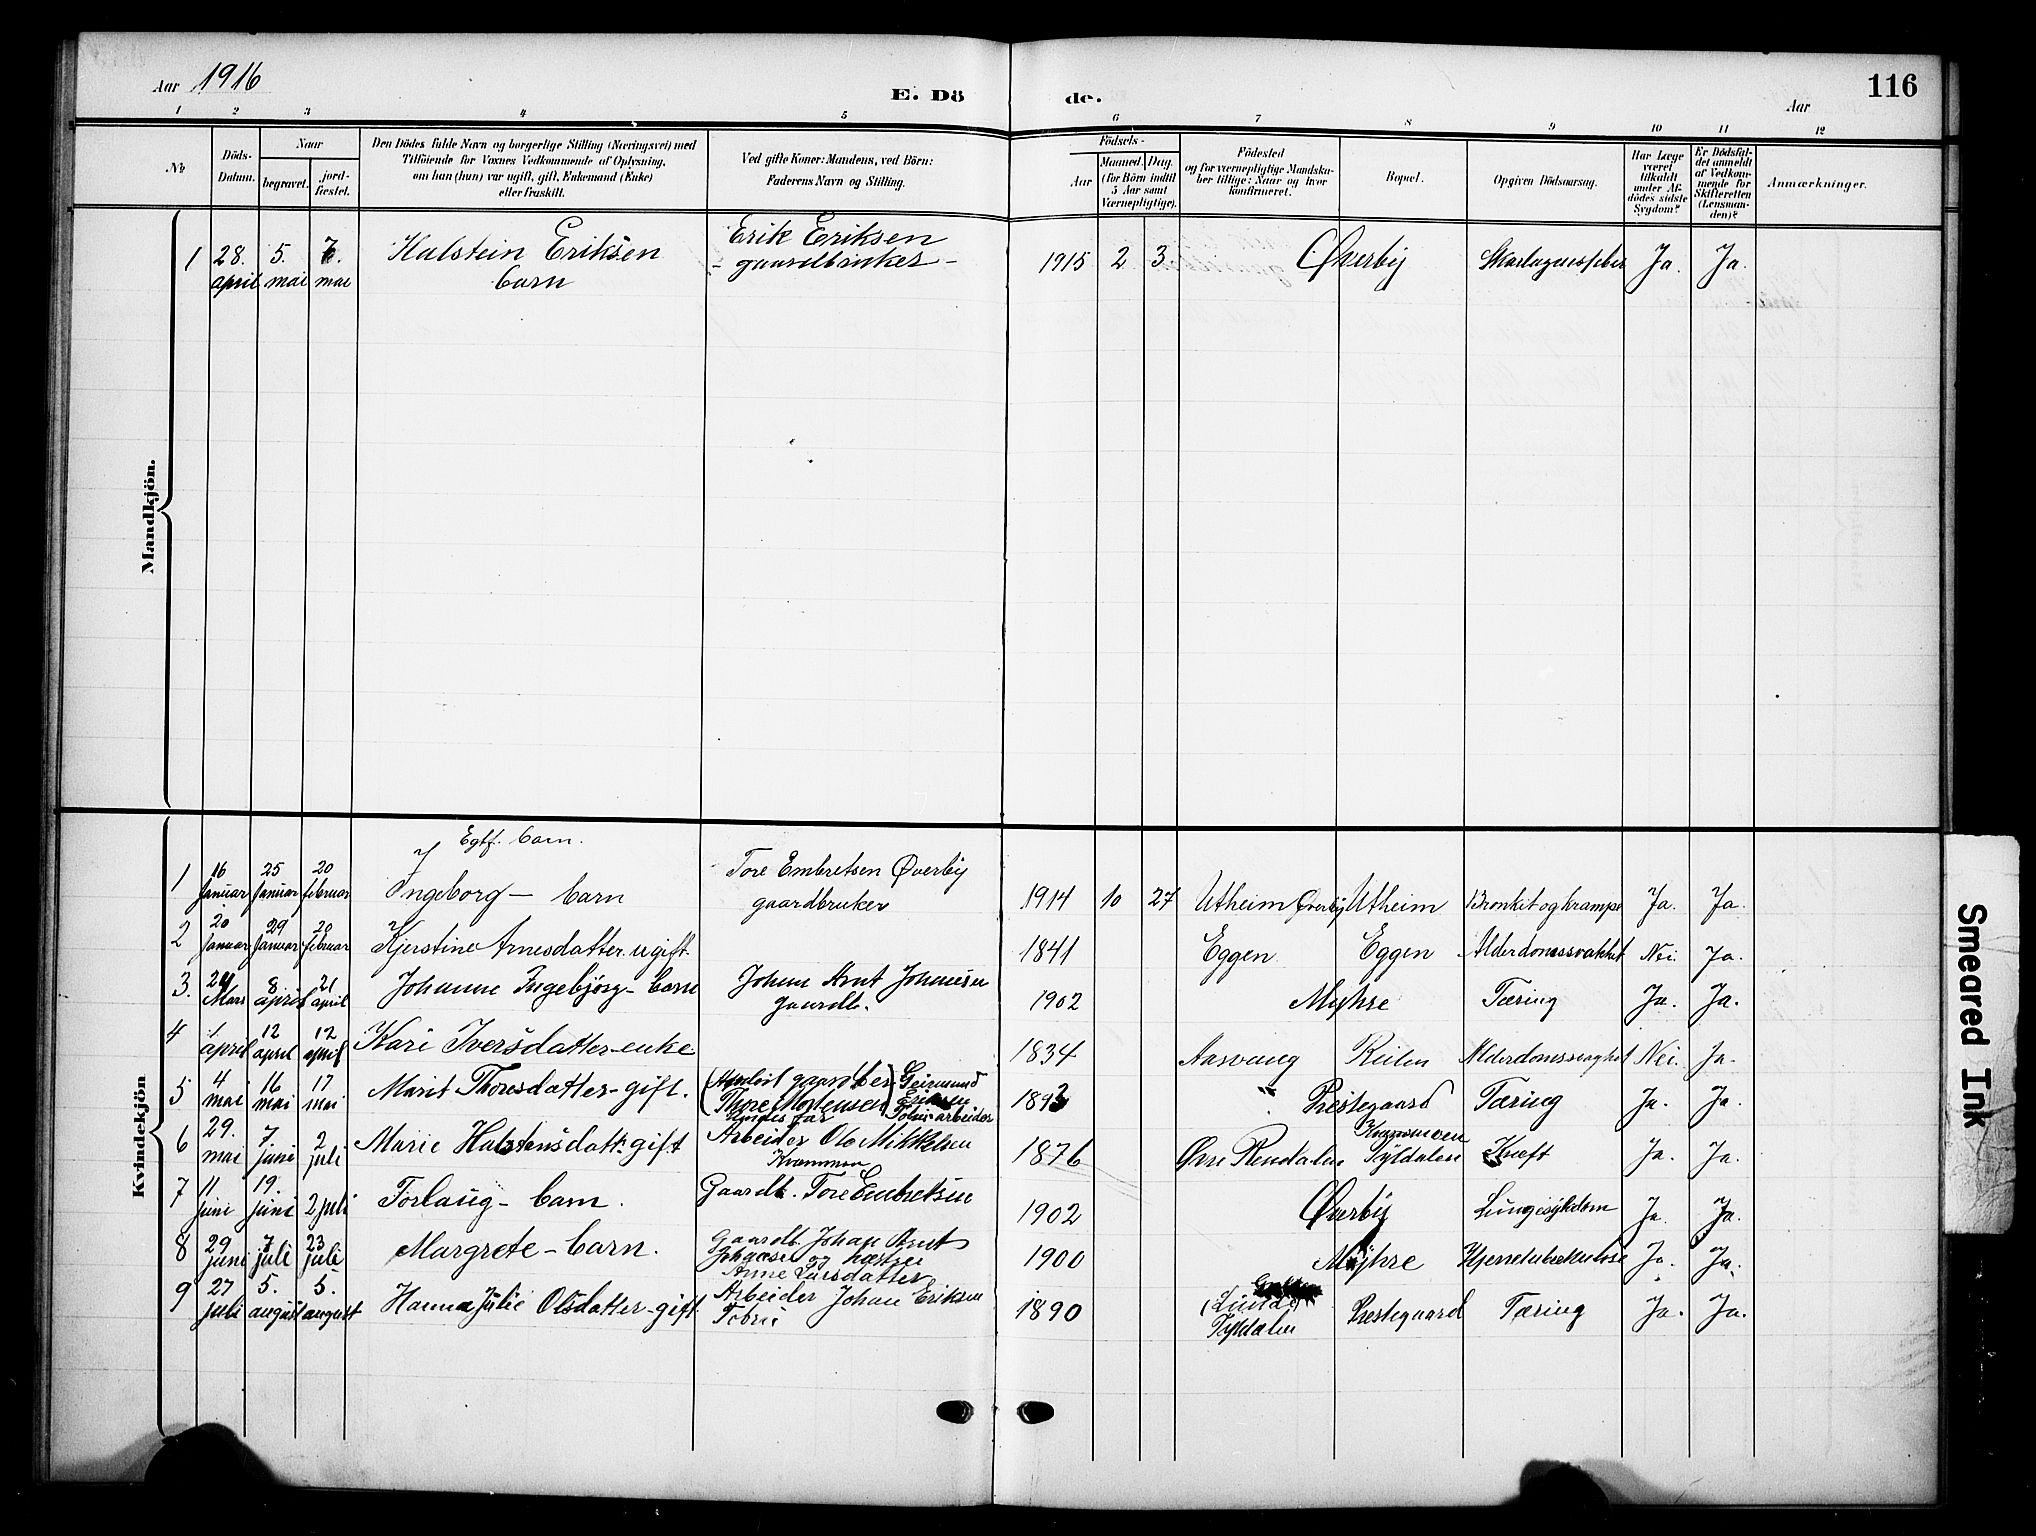 Aar 1916
E. Dö
de.
Aar
116
1 2 3 4 5 6 7 8 9 10 11 12
No
Döds-
Datum.
Naar
begravet.
jord-
fæstet.
Den Dödes fulde Navn og borgerlige Stilling (Næringsvei) med
Tilföiende for Voxnes Vedkommende af Oplysning,
om han (hun) var ugift, gift, Enkemand (Enke)
eller fraskilt.
Ved gifte Koner: Mandens, ved Börn:
Faderens Navn og Stilling.
Födsels-
Aar
Maaned. Dag.
(for Börn indtil
5 Aar samt
Værnepligtige).
Födested
og for værnepligtige Mandska-
ber tillige: Naar og hvor
konfirmeret.
Bopæl.
Opgiven Dödsaarsag.
Har Læge
været
tilkaldt
under Af-
dödes sidste
Sygdom?
Er Dödsfal-
det anmeldt
af Vedkom-
mende for
Skifteretten
(Lensman-
den)?
Anmærkninger.
Mandkjön.
1 28. april 5. mai 7. mai Halstein Eriksen barn Erik Eriksen - gaardbruker - 1915 2 3. Øverby Skarlagensfeber Ja. Ja.
Kvindekjön
Egtf. barn.
1 16 Januar 25 Januar 20 februar Ingeborg - barn Tore Embretsen Øverby gaardbruker 1914 10 27 Utheim Øverby Utheim Bronkit og krampe Ja. Ja.
2 20 Januar 29 Januar 20 februar Kjerstine Arnesdatter ugift. 1841 Eggen Eggen Alderdomssvakhet Nei. Ja.
3. 24 Mars 8 april 21 april Johanne Ingebjörg - barn Johan Arnt Johansen gaardb. 1902 Myhre Tæring Ja. Ja.
4 1 april 12 april 12 april Kari Iversdatter - enke 1834 Aasvang Nei. Ja.
5 4 mai 16 mai 17 mai Marit Thoresdatter - gift. (gaardbr. Thore Mortensen) Geirmund Eriksen arbeider 1893 Prestegaard Tæring Ja. Ja.
6 29. mai 7 juni 2 juli Marie Halstensdatt. gift Arbeider Ole Mikkelsen Kvammen 1876 Øvre Rendalen Tyldalen Kræft Ja. Ja.
7 11 juni 19. juni 2 juli Torlaug - barn. Gaardb. Tore Embretsen 1902 Øverby Lungesykdom Ja. Ja.
8 29 juni 7 juli 23 juli Margrete - barn. Gaardb. Johan Arnt Johansen og hustru Anne Larsdatter 1900 Myhre Hjernetuberkulose Ja. Ja.
9 27 juli 5. august 5. august Hanna Julie Olsdatter - gift Arbeider Johan Eriksen 1890 Tyldalen Prestegaard Tæring Ja. Ja.
Smeared Ink